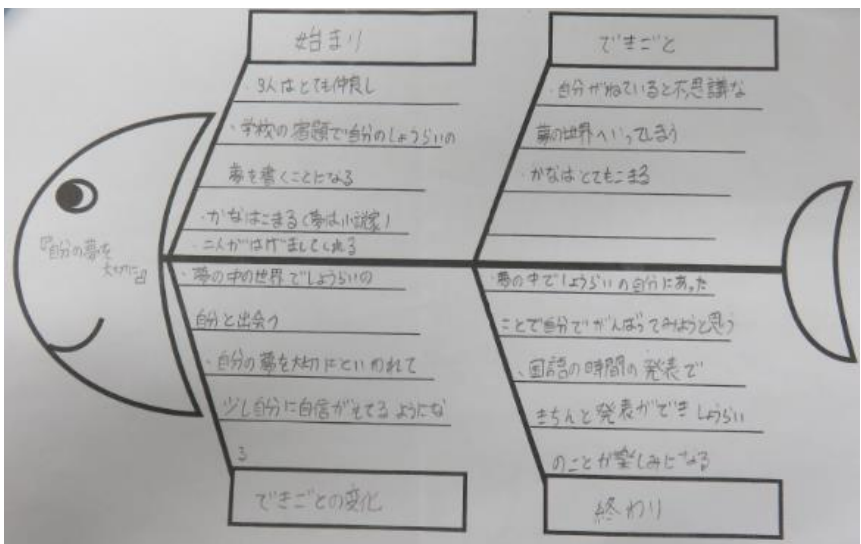 『自分の夢を
大切に』
始まり
・3人はとても仲良し
・学校の宿題で自分のしょうらいの
夢を書くことになる
・かなはこまる(夢は小説家)
・二人がはげましてくれる
できごと
・自分がねていると不思議な
夢の世界へいってしまう
・かなはとてもこまる
・夢の中の世界でしょうらいの
自分と出会う
・自分の夢を大切にといわれて
少し自分に自信がもてるようにな
る
できごとの変化
・夢の中でしょうらいの自分にあった
ことで自分でがんばってみようと思う
、国語の時間の発表で
きちんと発表ができしょうらい
のことが楽しみになる
終わり